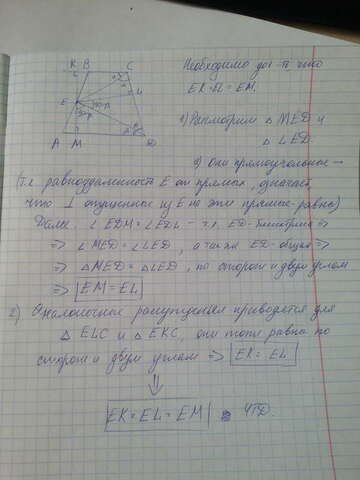 K B C
L
E
A M D
Необходимо док-ть что
EK=EL=EM.
1) Рассмотрим △ MED и
△ LED.
Они прямоугольные
(т.к. равноудаленность E от прямых, означает
что ⊥ опущенные из E на эти прямые - равны)
∠EDM = ∠EDL - т.к. ED-биссектриса ⇒
⇒ ∠MED = ∠LED, а также ED-общая ⇒
⇒ △MED = △LED, по стороне и двум углам
⇒ EM = EL
2) Аналогичное рассуждения приводятся для
△ ELC и △EKC, они тоже равны по
стороне и двум углам ⇒ EK = EL
⇓
EK = EL = EM ЧТД.